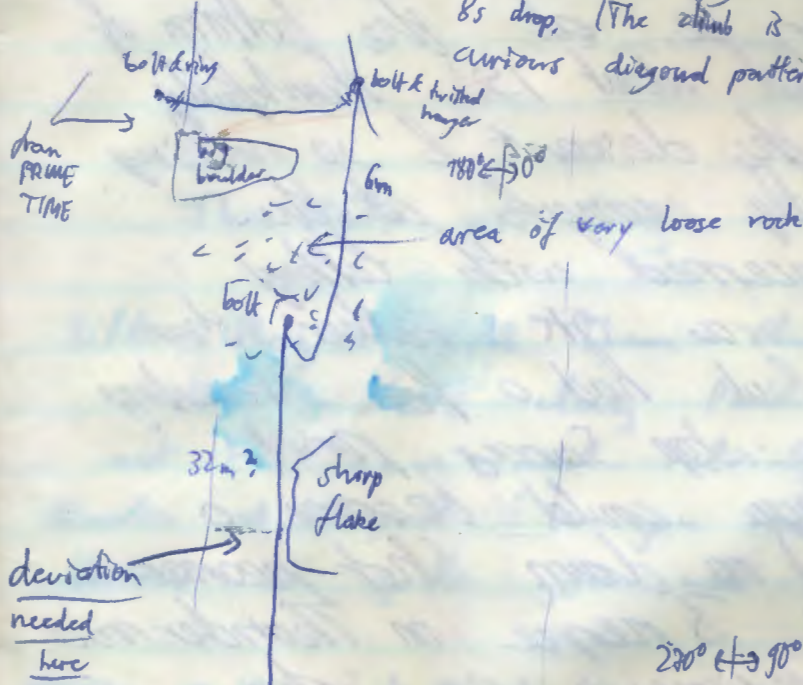 8s drop. (The climb is
curious diagonal patter
bolt & ring
bolt & twisted
hanger
from
PRIME
TIME
big
boulder
6m
180° 0°
area of very loose rock
bolt
32m?
sharp
flake
deviation
needed
here
270° 90°